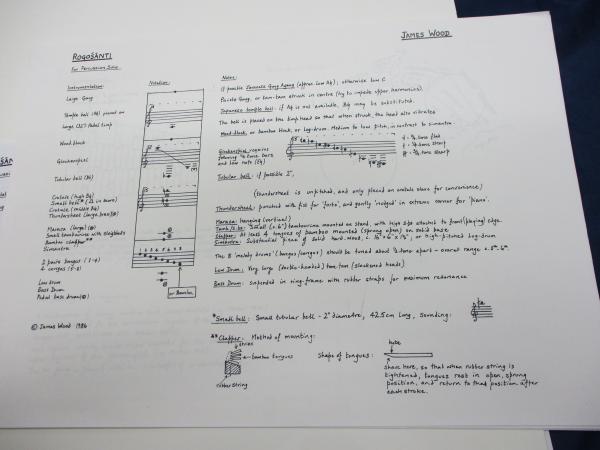 JAMES WOOD
ROGOŠĀNTI
For Percussion Solo
Instrumentation:
Notation:
Notes:
Large Gong
If possible Javanese Gong Ageng (approx low Ab); otherwise low C
Paiste Gong, or tam-tam struck in centre (try to impede upper harmonics).
Temple bell (A4) placed on
large (32") Pedal timp
Japanese temple bell: if A4 is not available, Bb may be substituted.
The bell is placed on the timp head so that when struck, the head also vibrates
Wood block
Wood block, or bamboo block, or log-drum. Medium to low pitch, in contrast to simantra.
Glockenspiel
Glockenspiel requires
following ¼-tone bars
and low note (E4)
= ¼-tone flat
= ¼-tone sharp
Tubular bell
Tubular bell: if possible 2",
Crotale (high B4)
Small bell* (
Crotale (middle B4)
Thundersheet (large, brass)
(thundersheet is unpitched, and only placed on crotale stave for convenience)
Thundersheet: punched with fist for 'forte', and gently 'nudged' in extreme corner for 'piano'.
Maraca (large)
Small tambourine with sleighbells
Bamboo clapper**
Simantra
Maraca: hanging (vertical)
Small (c.6") tambourine mounted on stand, with high side attached to front (playing) edge.
Clapper: At least 4 tongues of bamboo mounted (sprung open) on solid base
Simantra: Substantial piece of solid hard-wood, or high-pitched Log-drum
1 2 3 4 5 6 7 8
2 pairs bongos (1-4)
2 congas (5-8)
The 8 'melody drums' (bongos/congas) should be tuned about ¾-tone apart - overall range c. 8ve.
Low drum
Bass Drum
Pedal bass drum
or Bamboo
Low Drum: Very large (double-headed) tom-tom (slackened heads)
Bass Drum: suspended in ring-frame with rubber straps for maximum resonance
© James Wood 1986
*Small bell: Small tubular bell - 2" diametre, 42.5cm long, sounding:
**Clapper: Method of mounting:
string
bamboo tongues
rubber string
Shape of tongues:
hole
shave here, so that when rubber string is
tightened, tongues rest in open, sprung
position, and return to that position after
each stroke.